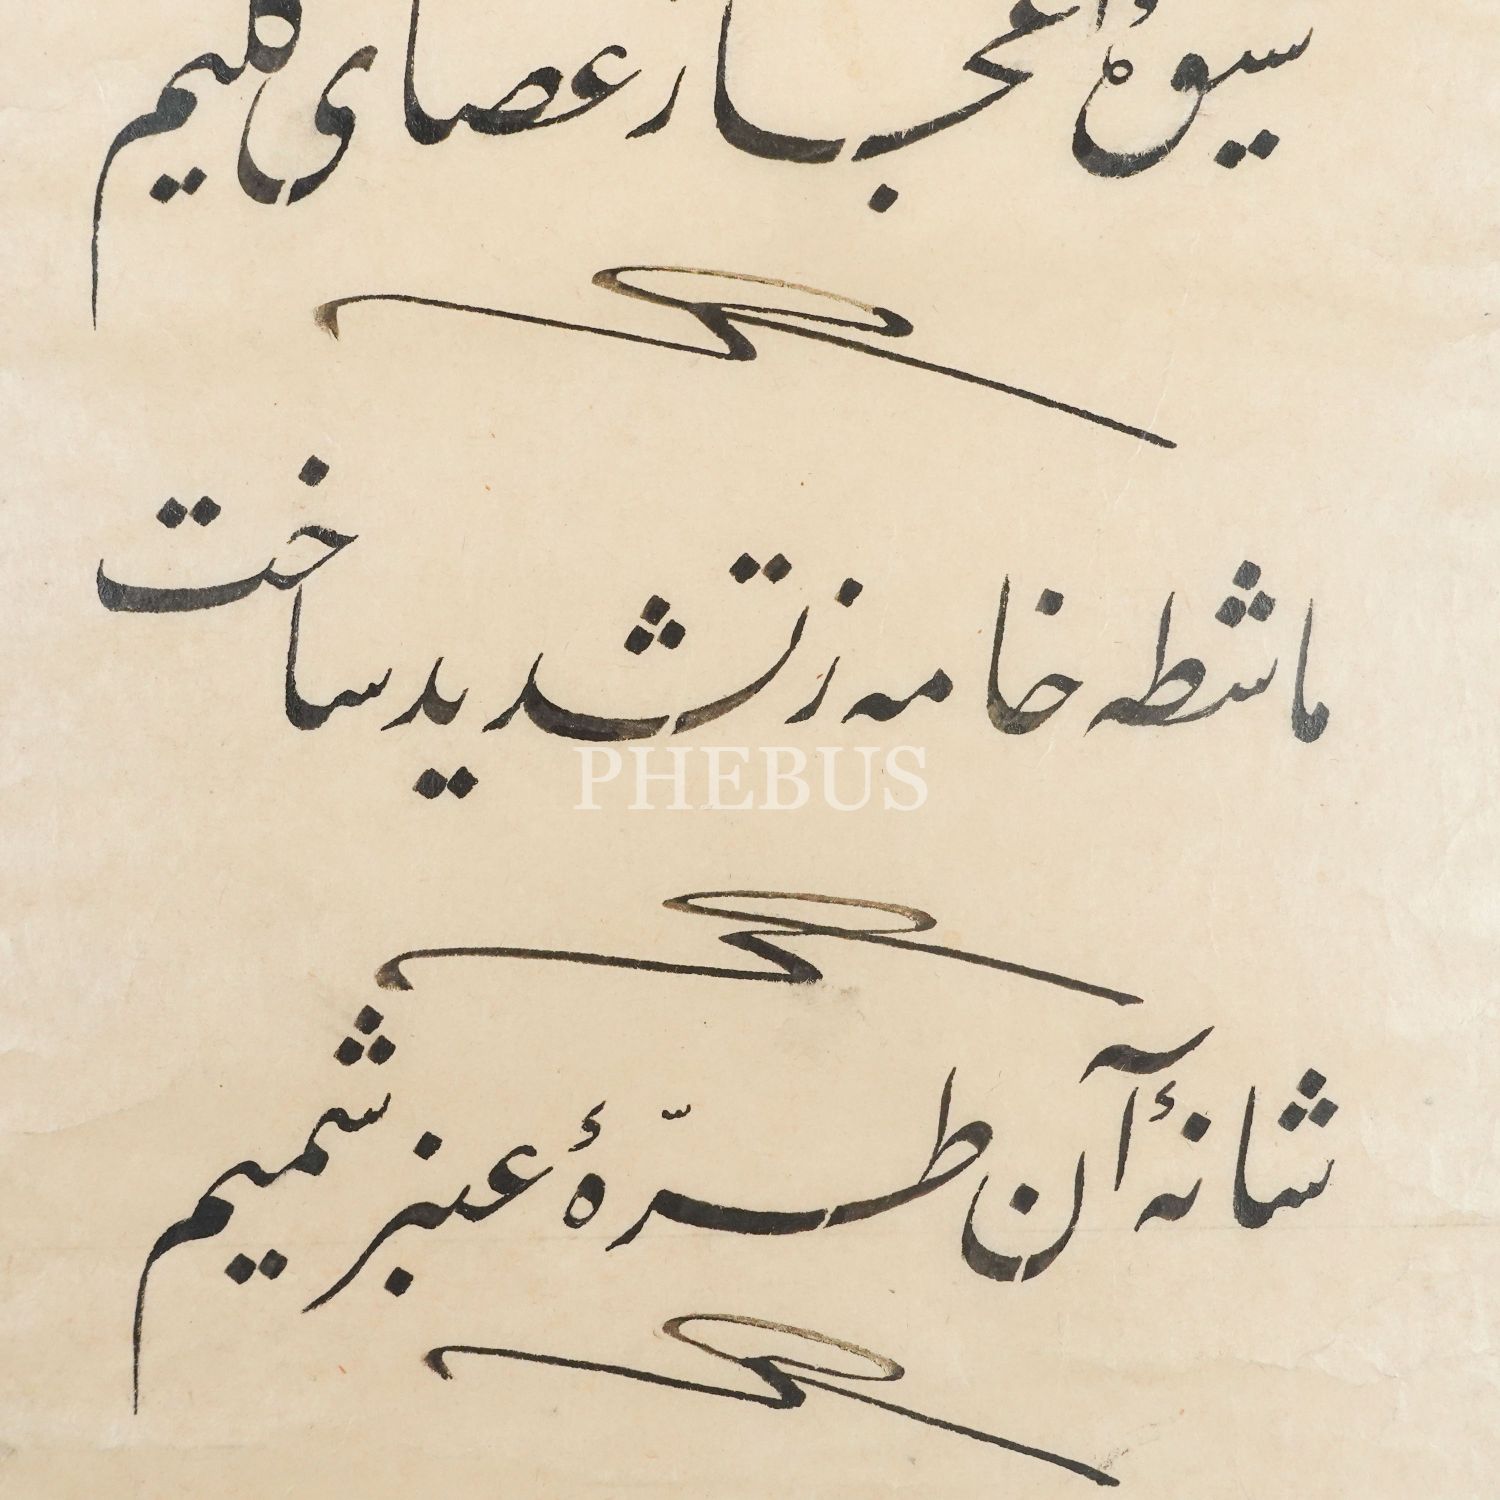 میوهٔ اعجاز عصای کلیم
ماشطه خامه ز تشدید ساخت
PHEBUS
شانهٔ آن طرّهٔ عنبر شمیم